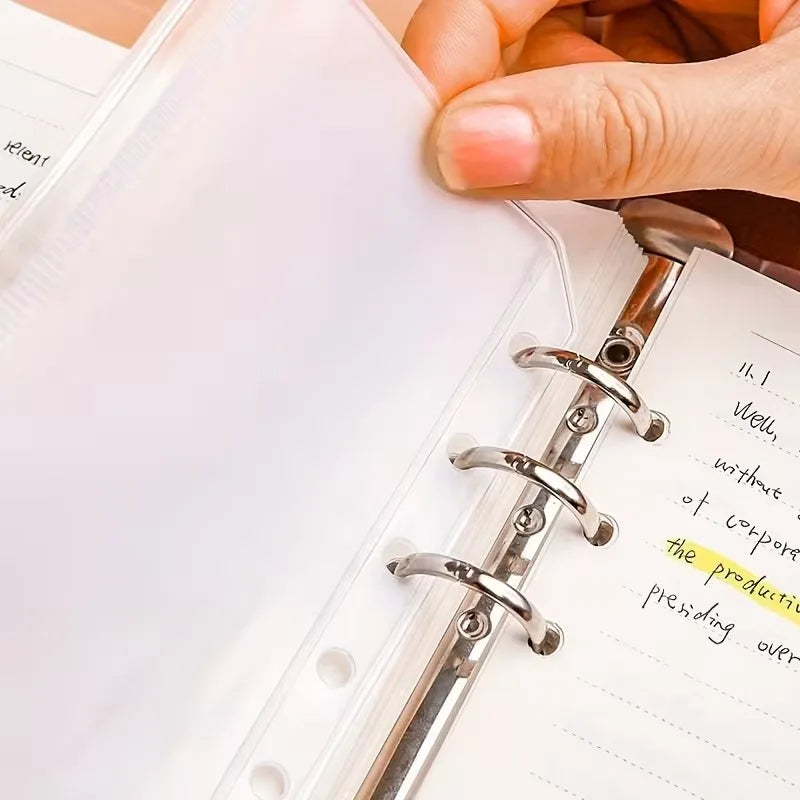 relent
ed.
11.1
Well,
without
of corpora
the producti
presiding over